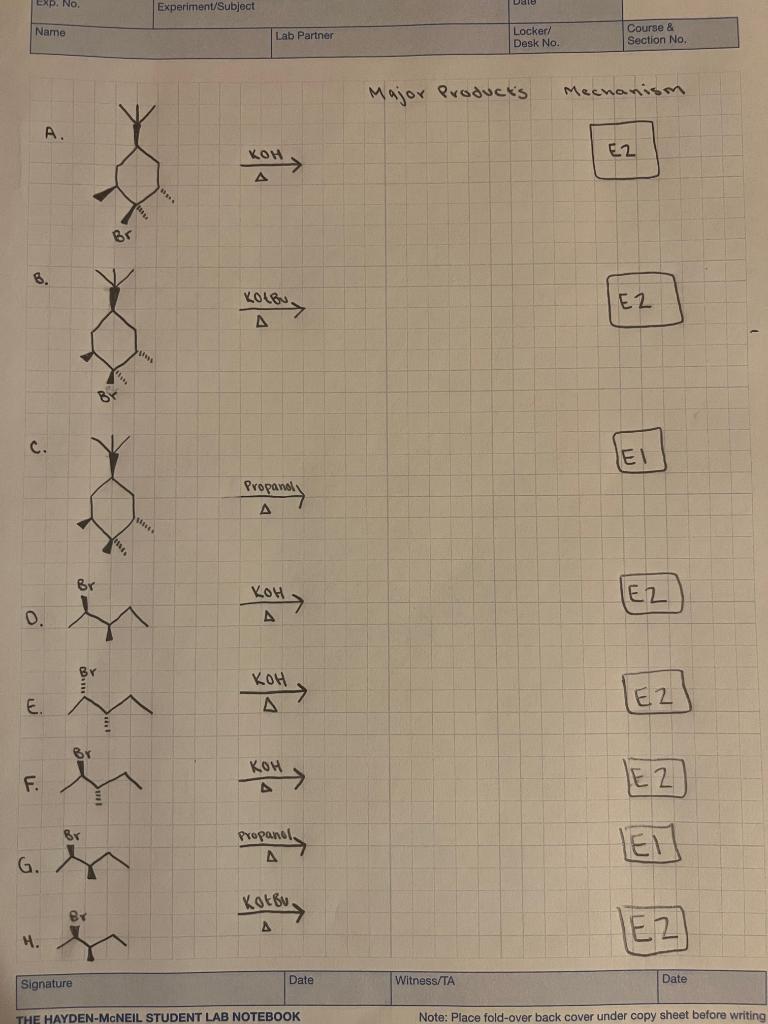 Exp. No. Experiment/Subject Date
Name Lab Partner Locker/ Desk No. Course & Section No.
Major Products Mechanism
A. KOH E2
Δ
Br
B. KOtBu E2
Δ
Br
C. E1
Propanol
Δ
Br
D. KOH E2
Δ
Br
E. KOH E2
Δ
Br
F. KOH E2
Δ
Br
G. Propanol E1
Δ
Br
H. KOtBu E2
Δ
Signature Date Witness/TA Date
THE HAYDEN-McNEIL STUDENT LAB NOTEBOOK Note: Place fold-over back cover under copy sheet before writing